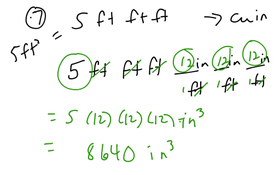 .7
5ft³ = 5 ft ft ft → cu in
5 ft ft ft 12 in / 1 ft 12 in / 1 ft 12 in / 1 ft
= 5 (12) (12) (12) in³
= 8640 in³